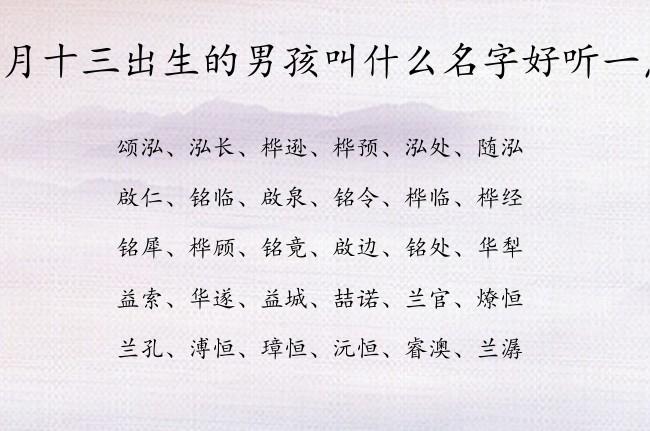 月十三出生的男孩叫什么名字好听一
颂泓、泓长、桦逊、桦预、泓处、随泓
啟仁、铭临、啟泉、铭令、桦临、桦经
铭犀、桦顾、铭竟、啟边、铭处、华犁
益索、华遂、益城、喆诺、兰官、燎恒
兰孔、溥恒、璋恒、沅恒、睿澳、兰潺